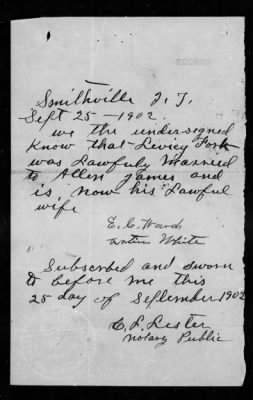 Smithville I. T.
Sept 25 - 1902.
we the undersigned
Know that Levicy Fork
was Lawfuly Married
to Allen James and
is now his Lawful
wife
E. C. Ward
White
Subscribed and sworn
to before me this
25 day of September 1902
C. L. Lester
Notary Public